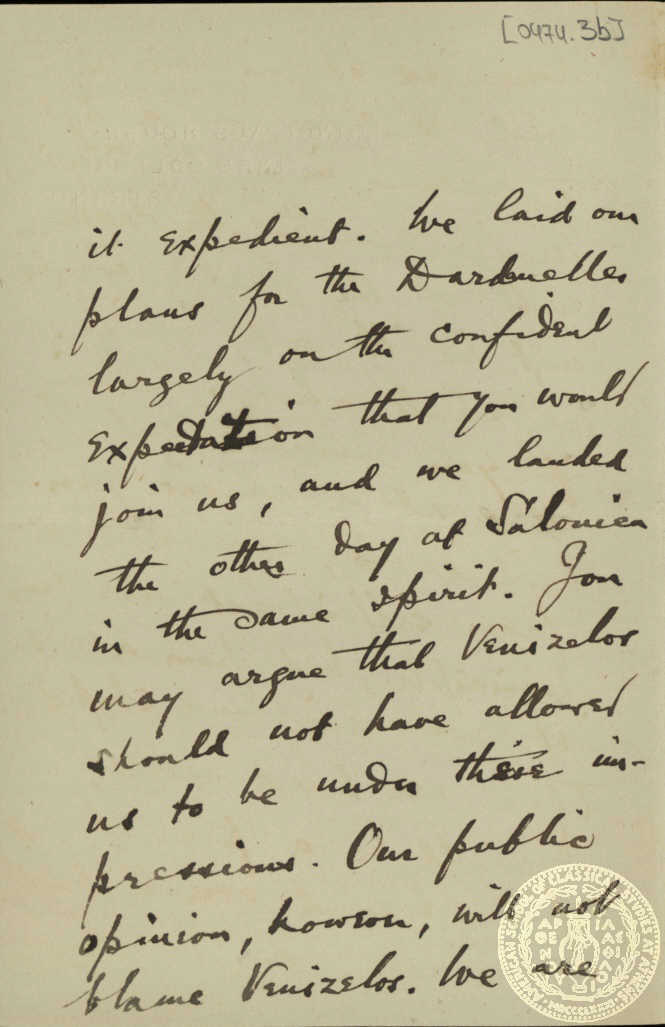 [0474.3b]
it expedient. We laid our
plans for the Dardanelles
largely on the confident
expectation that you would
join us, and we landed
the other day at Salonica
in the same spirit. You
may argue that Venizelos
should not have allowed
us to be under these im-
pressions. Our public
opinion, however, will not
blame Venizelos. We are
AMERICAN SCHOOL OF CLASSICAL STUDIES AT ATHENS